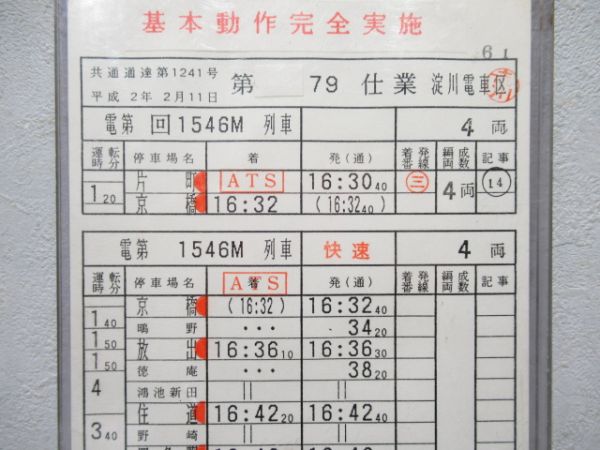 基本動作完全実施
61
共通通達第1241号
平成 2年 2月11日
第 79 仕業 淀川電車区
電第 回1546M 列車 4両
運転時分 停車場名 着 発(通) 着発番線 編成両数 記事
片町 ATS 16:30 40 三 4両 14
1 20 京橋 16:32 (16:32 40)
電第 1546M 列車 快速 4両
運転時分 停車場名 着 ATS 発(通) 着発番線 編成両数 記事
京橋 (16:32) 16:32 40
1 40 鴫野 ・・・ 34 20
1 50 放出 16:36 10 16:36 30
1 50 徳庵 ・・・ 38 20
4 鴻池新田 || ||
住道 16:42 20 16:42 40
3 40 野崎 || ||